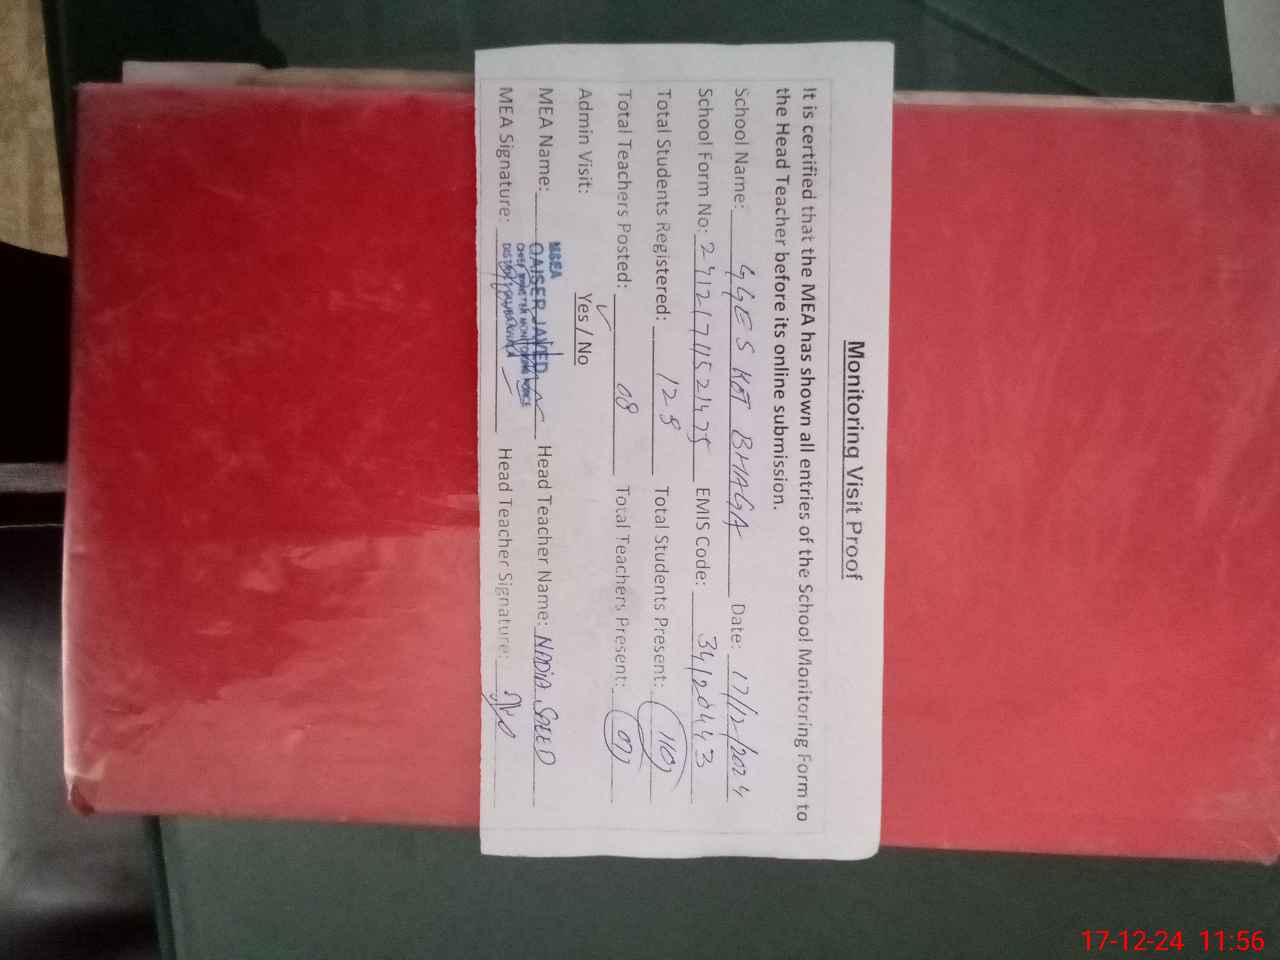 Monitoring Visit Proof
It is certified that the MEA has shown all entries of the School Monitoring Form to
the Head Teacher before its online submission.
School Name: GGES KOT BHAGA Date: 17/12/2024
School Form No: EMIS Code: 34120443
Total Students Registered: 128 Total Students Present: 110
Total Teachers Posted: 08 Total Teachers Present:
Admin Visit: Yes / No
MEA Name: Head Teacher Name: NADIA
M&EA
QAISER JAVED
CHIEF MINISTER MONITORING FORCE
MEA Signature: Head Teacher Signature:
17-12-24 11:56